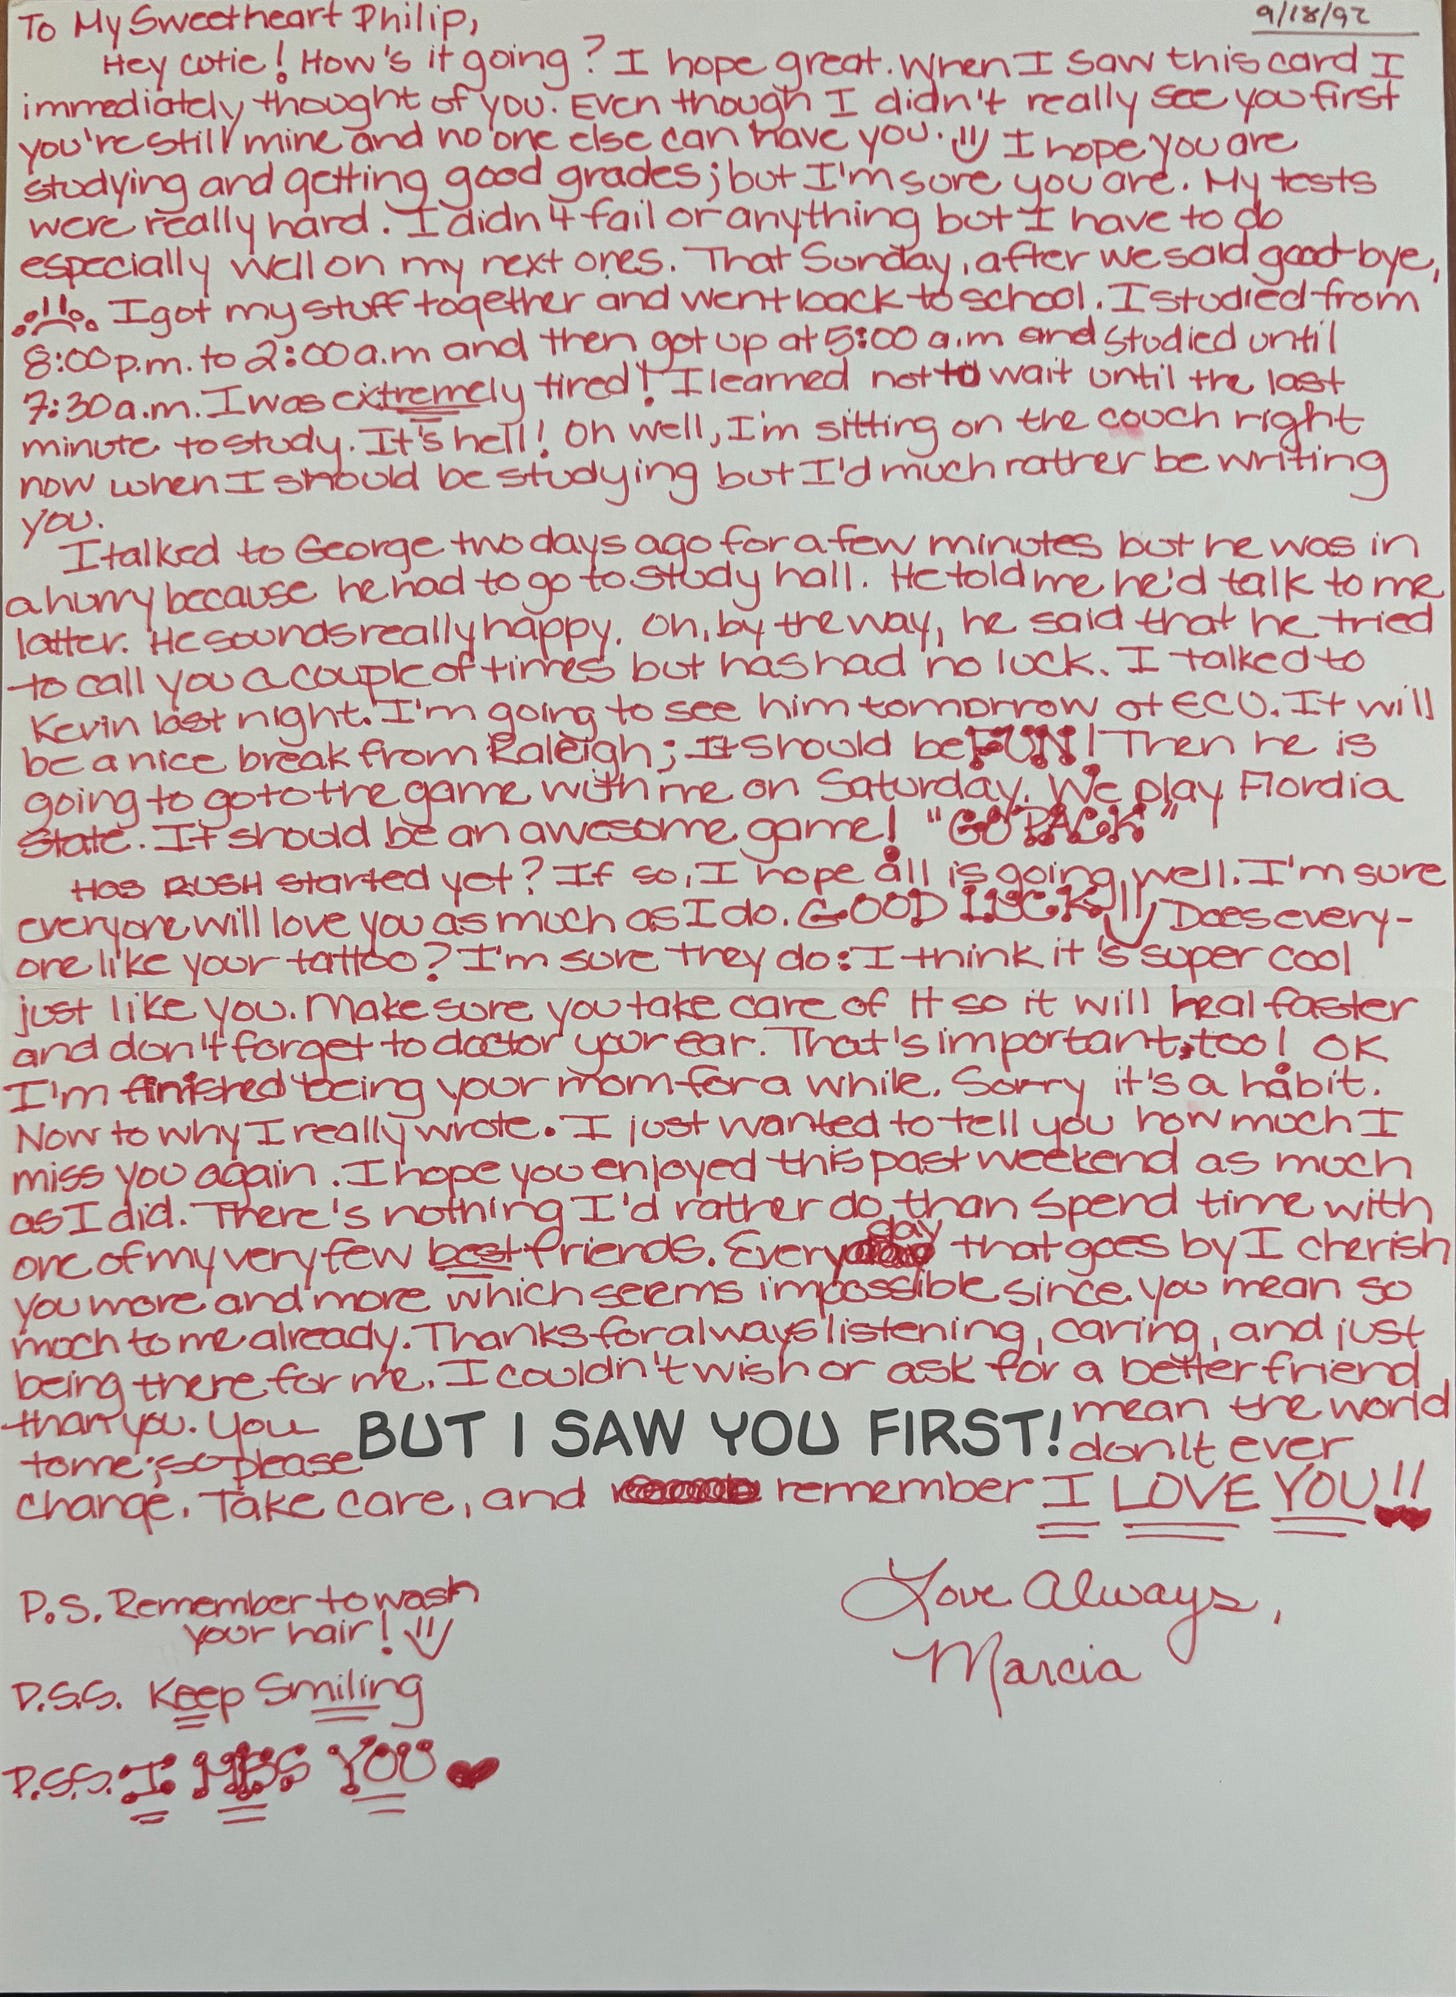 9/18/92
To My Sweetheart Philip,
Hey cutie! How's it going? I hope great. When I saw this card I
immediately thought of you. Even though I didn't really see you first
you're still mine and no one else can have you. I hope you are
studying and getting good grades; but I'm sure you are. My tests
were really hard. I didn't fail or anything but I have to do
especially well on my next ones. That Sunday, after we said good-bye,
I got my stuff together and went back to school. I studied from
8:00p.m. to 2:00a.m and then got up at 5:00 a.m and studied until
7:30a.m. I was extremely tired! I learned not to wait until the last
minute to study. It's hell! Oh well, I'm sitting on the couch right
now when I should be studying but I'd much rather be writing
you.
I talked to George two days ago for a few minutes but he was in
a hurry because he had to go to study hall. He told me he'd talk to me
latter. He sounds really happy. Oh, by the way, he said that he tried
to call you a couple of times but has had no luck. I talked to
Kevin last night. I'm going to see him tomorrow at ECU. It will
be a nice break from Raleigh; It should be FUN! Then he is
going to go to the game with me on Saturday. We play Flordia
State. It should be an awesome game! "GO PACK"
Has RUSH started yet? If so, I hope all is going well. I'm sure
everyone will love you as much as I do. GOOD LUCK!! Does every-
one like your tattoo? I'm sure they do: I think it's super cool
just like you. Make sure you take care of it so it will heal faster
and don't forget to doctor your ear. That's important, too! OK
I'm finished being your mom for a while. Sorry it's a habit.
Now to why I really wrote. I just wanted to tell you how much I
miss you again. I hope you enjoyed this past weekend as much
as I did. There's nothing I'd rather do than spend time with
one of my very few best friends. Every day that goes by I cherish
you more and more which seems impossible since you mean so
much to me already. Thanks for always listening, caring, and just
being there for me. I couldn't wish or ask for a better friend
than you. You mean the world
BUT I SAW YOU FIRST!
to me; so please don't ever
change. Take care, and remember I LOVE YOU!!
Love Always,
Marcia
P.S. Remember to wash
your hair!
P.S.S. Keep Smiling
P.S.S. I MISS YOU